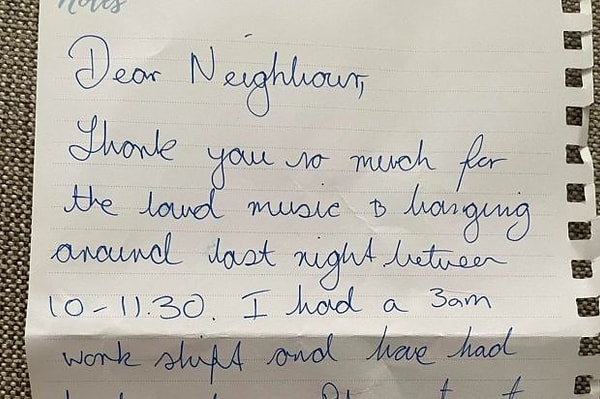 notes
Dear Neighbour,
Thank you so much for
the loud music & banging
around last night between
10-11.30. I had a 3am
work shift and have had